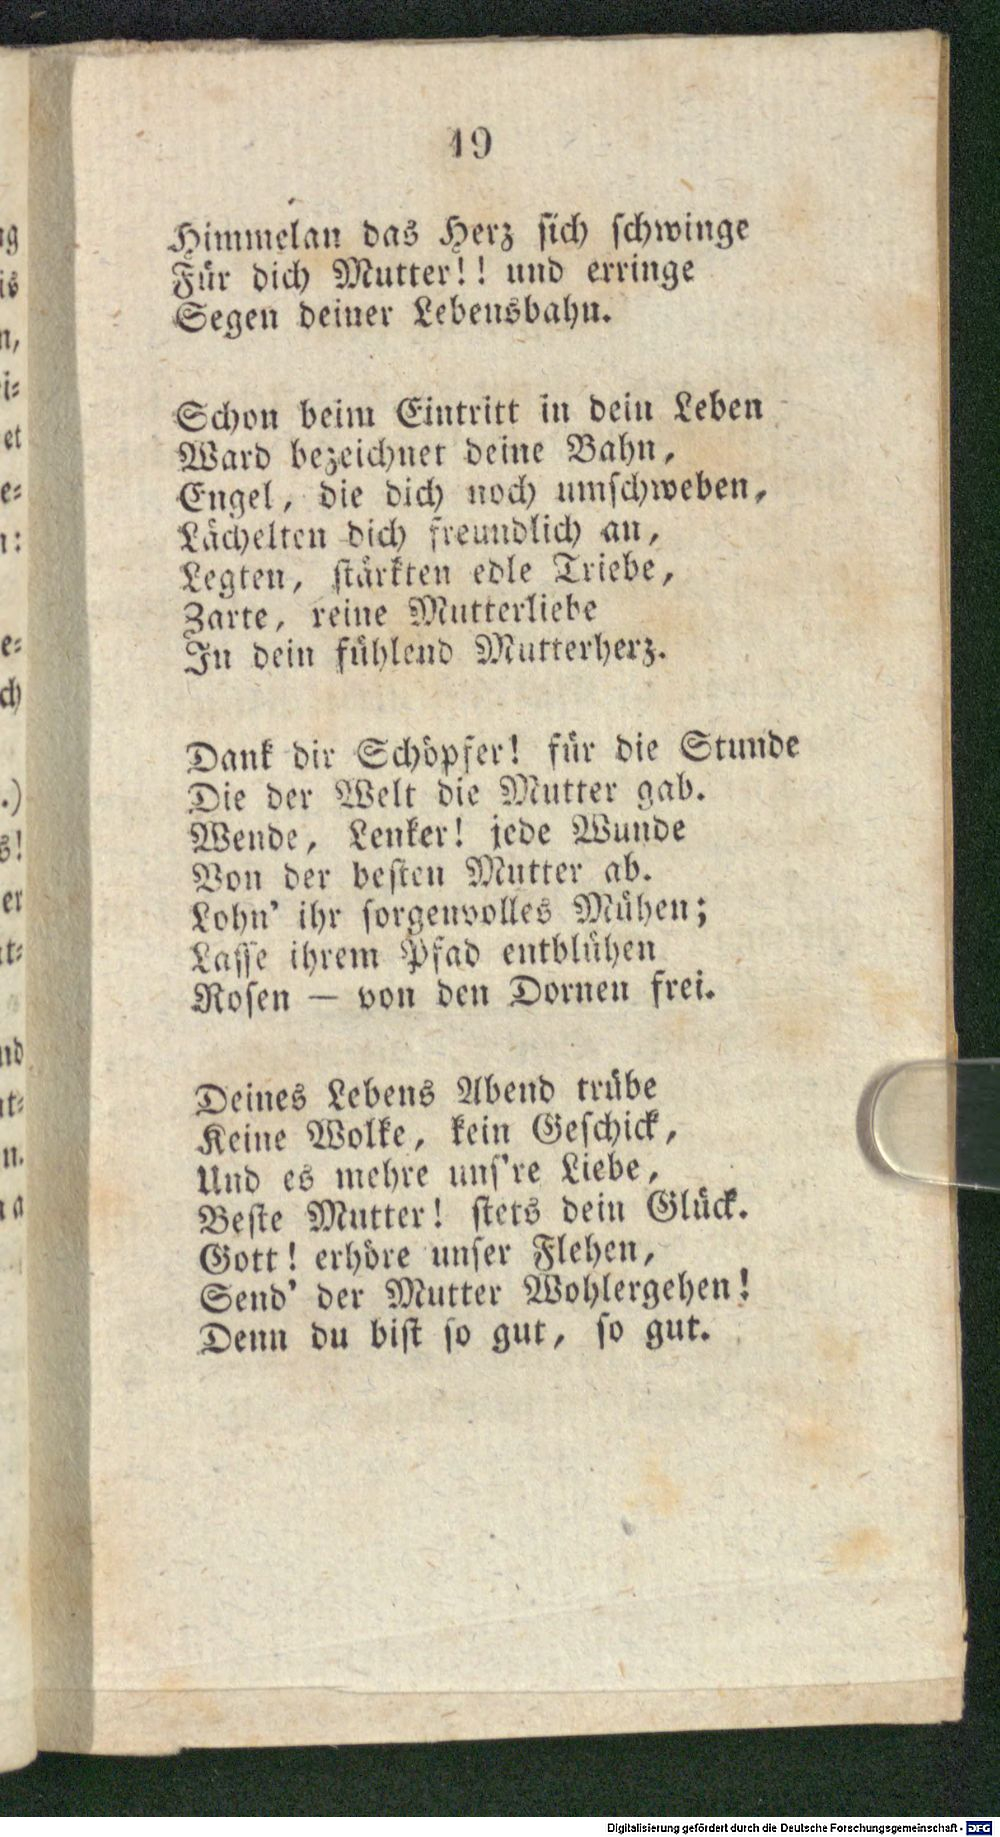 19
Himmelan das Herz sich schwinge
Für dich Mutter!! und erringe
Segen deiner Lebensbahn.
Schon beim Eintritt in dein Leben
Ward bezeichnet deine Bahn,
Engel, die dich noch umschweben,
Lächelten dich freundlich an,
Legten, stärkten edle Triebe,
Zarte, reine Mutterliebe
In dein fühlend Mutterherz.
Dank dir Schöpfer! für die Stunde
Die der Welt die Mutter gab.
Wende, Lenker! jede Wunde
Von der besten Mutter ab.
Lohn' ihr sorgenvolles Mühen;
Lasse ihrem Pfad entblühen
Rosen — von den Dornen frei.
Deines Lebens Abend trübe
Keine Wolke, kein Geschick,
Und es mehre uns're Liebe,
Beste Mutter! stets dein Glück.
Gott! erhöre unser Flehen,
Send' der Mutter Wohlergehen!
Denn du bist so gut, so gut.
Digitalisierung gefördert durch die Deutsche Forschungsgemeinschaft - DFG